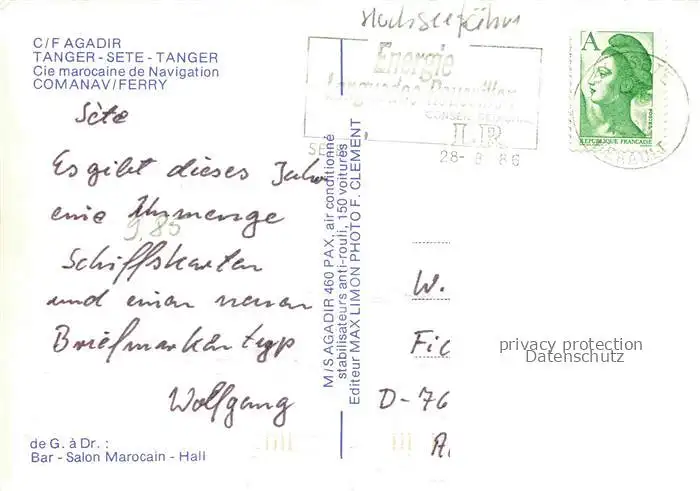 Hochseefähre
C/F AGADIR
TANGER - SETE - TANGER
Cie marocaine de Navigation
COMANAV/FERRY
Energie
Languedoc Roussillon
CONSEIL REGIONAL
LR
28-8 86
A
POSTES
REPUBLIQUE FRANÇAISE
HERAULT
Sète
Es gibt dieses Jahr
eine Unmenge
9.85
Schiffskarten
und einen neuen
Briefmarkentyp
Wolfgang
M/S AGADIR 460 PAX, air conditionné
stabilisateurs anti-rouli, 150 voitures
Editeur MAX LIMON PHOTO F. CLEMENT
W.
Fic
D-76
privacy protection
Datenschutz
de G. à Dr. :
Bar - Salon Marocain - Hall